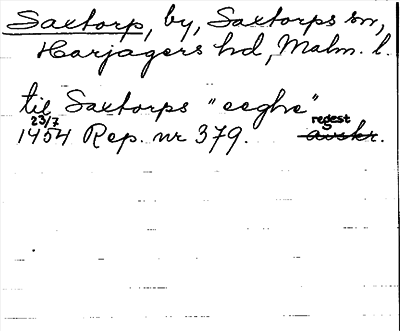 Saxtorp, by, Saxtorps sn,
Harjagers hd, Malm. l.
til Saxtorps "eeghe"
23/7 regest
1454 Rep. nr 379. avskr.